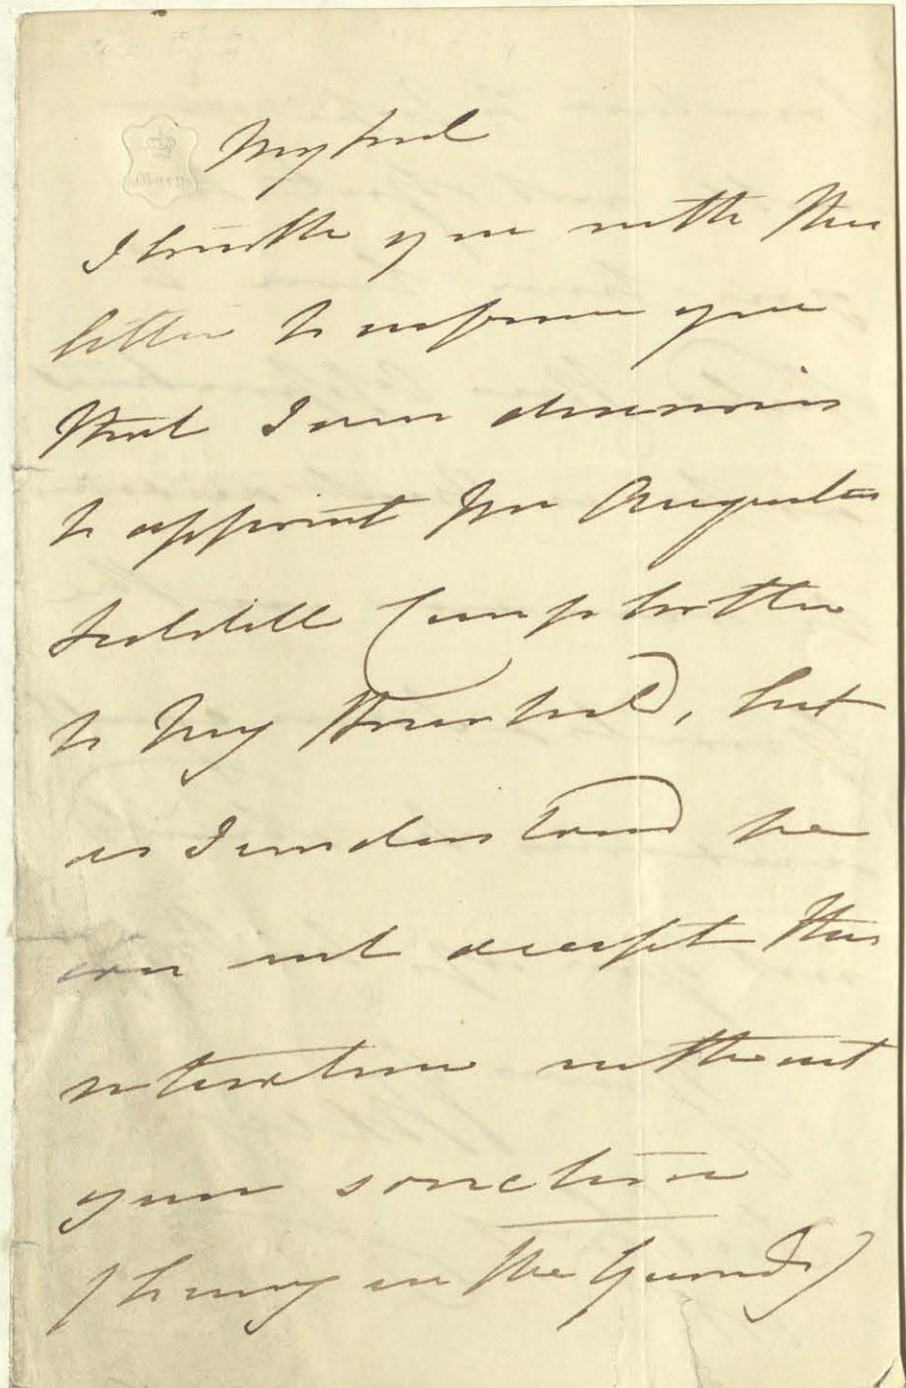 My Lord
I trouble you with this
letter to inform you
that I am desirous
to appoint Mr Augustus
Liddell Comptroller
to My Household, but
as I understand he
can not accept this
situation without
your sanction
(being in the Guards)